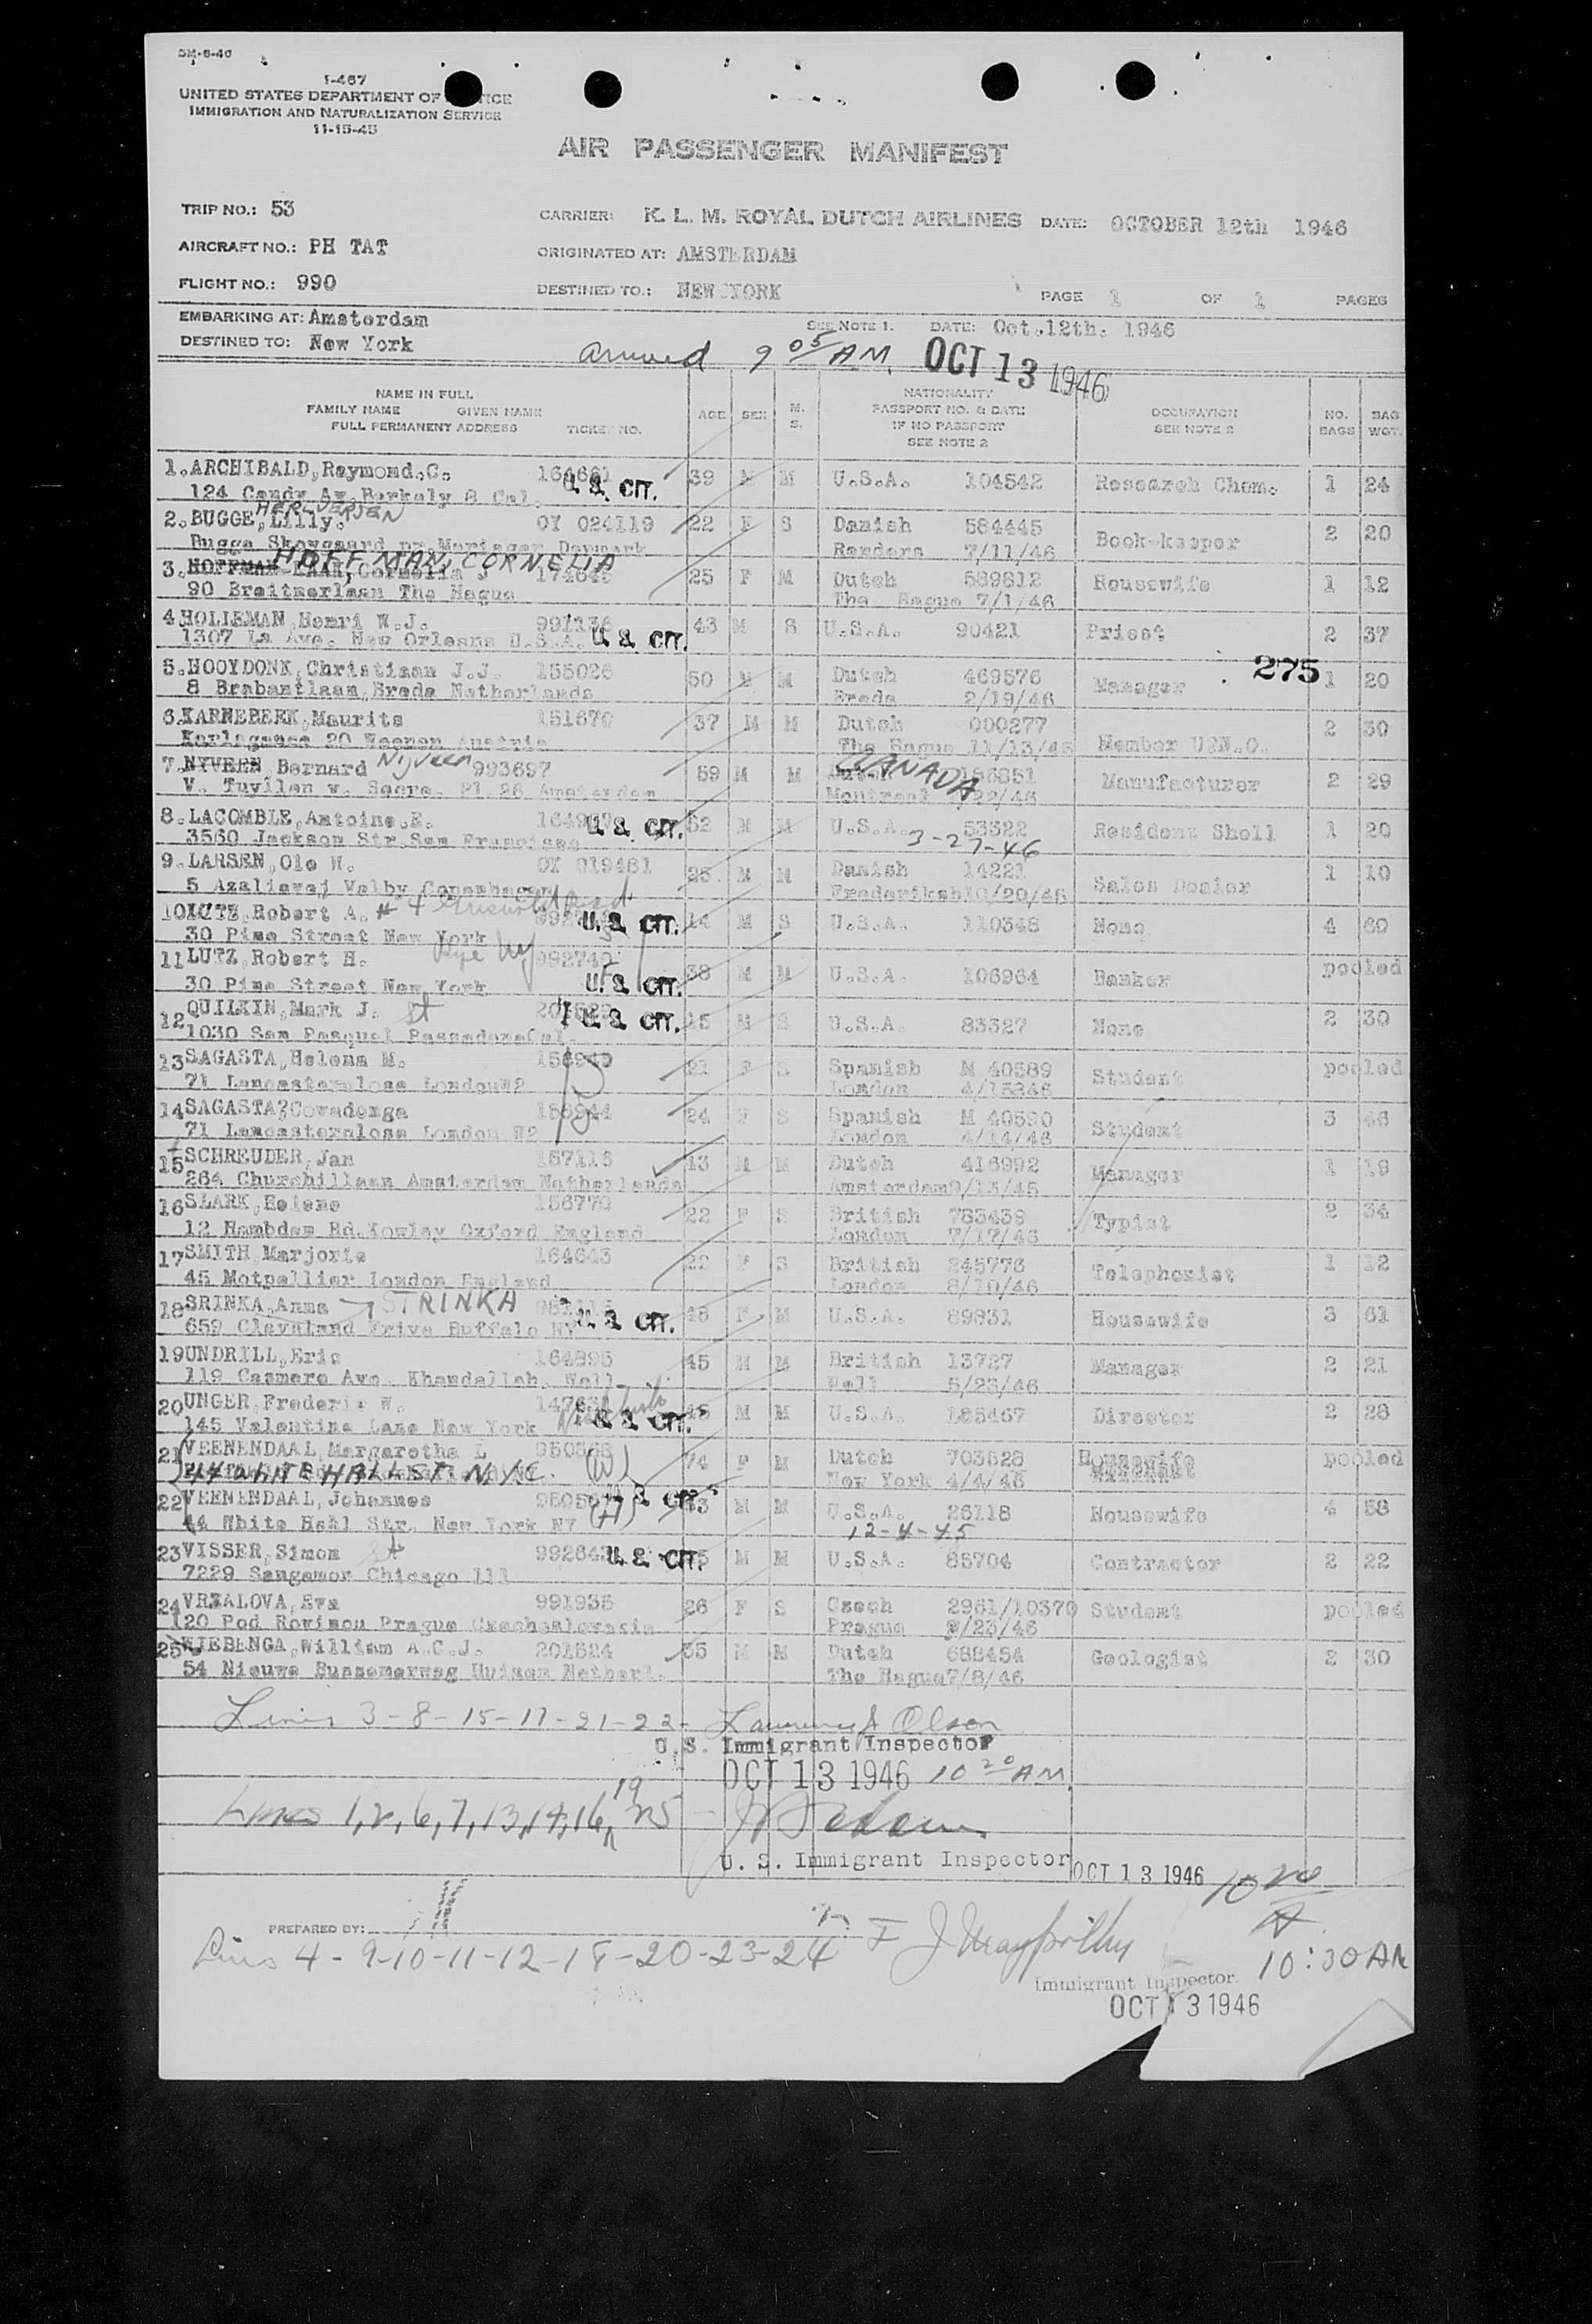 DM-6-46
I-467
UNITED STATES DEPARTMENT OF
IMMIGRATION AND NATURALIZATION SERVICE
11-15-45
AIR PASSENGER MANIFEST
TRIP NO.: 53 CARRIER: K. L. M. ROYAL DUTCH AIRLINES DATE: OCTOBER 12th 1946
AIRCRAFT NO.: PH TAT ORIGINATED AT: AMSTERDAM
FLIGHT NO.: 990 DESTINED TO.: NEW YORK PAGE 1 OF 1 PAGES
EMBARKING AT: Amsterdam SEE NOTE 1. DATE: Oct.12th. 1946
DESTINED TO: New York
arrived 9 05 AM. OCT 13 1946
NAME IN FULL
FAMILY NAME GIVEN NAME
FULL PERMANENT ADDRESS TICKET NO.
AGE SEX M. S.
NATIONALITY
PASSPORT NO. & DATE
IF NO PASSPORT
SEE NOTE 2
OCCUPATION
SEE NOTE 2
NO. BAGS
BAG WGT.
1. ARCHIBALD, Raymond.C. 164661 39 M M U.S.A. 104542 Research Chem. 1 24
124 Candy Av. Berkely 8 Cal. U.S. CIT.
2. BUGGE, Lilly. OY 024119 22 F S Danish 584445 Book-keeper 2 20
Bugge Skovgaard nr Mariager Denmark Randers 7/11/46
HOFFMAN, CORNELIA
3. Cornelia J 25 F M Dutch 589612 Housewife 1 12
90 Breitnerlaan The Hague The Hague 7/1/46
4 HOLLEMAN, Henri W.J. 991136 43 M S U.S.A. 90421 Priest 2 37
1307 La Ave. New Orleans U.S.A. U.S. CIT.
275
5. HOOYDONK, Christiaan J.J. 155026 50 M M Dutch 469576 Manager 1 20
8 Brabantlaan, Breda Netherlands Breda 2/19/46
6. KARNEBEEK, Maurits 151670 37 M M Dutch 000277 Member U?N.O. 2 30
Karlsgasse 20 Weenen Austria The Hague 11/13/45
7. NYVEEN, Bernard Nijveen 993697 59 M M CANADA Manufacturer 2 29
V. Tuyllen v. Seers. Pl. 26 Amsterdam Montreal /22/46
8. LACOMBLE, Antoine.E. U.S. CIT. 52 M M U.S.A. 53322 Resident Shell 1 20
3560 Jackson Str. San Francisco 3-27-46
9. LARSEN, Ole W. OY 019461 25 M M Danish 14221 Sales Dealer 1 10
5 Azaliavej Valby Copenhagen Frederiksb10/20/45
10 LUTZ, Robert A. # 4 Griswold Road U.S. CIT. 14 M S U.S.A. 110348 None 4 60
30 Pine Street New York Rye NY
11 LUTZ, Robert H. 992740 38 M M U.S.A. 106964 Banker pooled
30 Pine Street New York U.S. CIT.
12 QUILKIN, Mark J. St U.S. CIT. 15 M S U.S.A. 83327 None 2 30
1030 San Pasqual PassadenaCal.
13 SAGASTA, Helena M. 21 F S Spanish M 40589 Student pooled
71 Lancasterclose LondonW2 London 4/15846
14 SAGASTA?Covadonga 156944 24 F S Spanish M 40590 Student 3 46
71 Lancasterclose London W2 London 4/14/46
15 SCHREUDER, Jan 157116 43 M M Dutch 416992 Manager 1 19
264 Churchillaan Amsterdam Netherlands Amsterdam9/13/45
16 SLARK, Helene 156770 22 F S British 783439 Typist 2 34
12 Hambden Rd. Kowley Oxford England London 7/17/46
17 SMITH, Marjorie 164643 22 F S British 245776 Telephonist 1 12
45 Motpellier London England London 8/10/46
18 SRINKA, Anna STRINKA U.S. CIT. 48 F M U.S.A. 89831 Housewife 3 61
659 Cleveland Drive Buffalo NY
19 UNDRILL, Eric 164895 45 M M British 13727 Manager 2 21
119 Cazmere Ave. Khandallah. Well. Well 5/23/46
20 UNGER, Frederic W. U.S. CIT. 45 M M U.S.A. 185467 Director 2 28
145 Valentine Lane New York
21 VEENENDAAL, Margaretha L (W) 74 F M Dutch 703528 Housewife pooled
44 WHITEHALL ST. N.Y.C. New York 4/4/46
22 VEENENDAAL, Johannes (H) U.S. CIT. 73 M M U.S.A. 26118 Housewife 4 58
44 White Hall Str. New York NY 12-4-45
23 VISSER, Simon St U.S. CIT. M M U.S.A. 85704 Contractor 2 22
7229 Sangamon Chicago Ill
24 VRZALOVA, Eva 991935 26 F S Czech 2961/10370 Student pooled
120 Pod Rovinou Prague Czechoslovacia Prague /23/46
25 WIEBENGA, William A.C.J. 201524 35 M M Dutch 688454 Geologist 2 30
54 Nieuwe Bussemerweg Huizen Netherl. The Hague7/8/46
Lines 3-8-15-17-21-22- Olson
U.S. Immigrant Inspector
OCT 13 1946 10 20 AM
Lines 1, 2, 6, 7, 13, 14, 16, 19 25 -
U. S. Immigrant Inspector OCT 13 1946 10 20 A
PREPARED BY:
Lines 4-9-10-11-12-18-20-23-24
Immigrant Inspector. 10:30 AM
OCT 13 1946